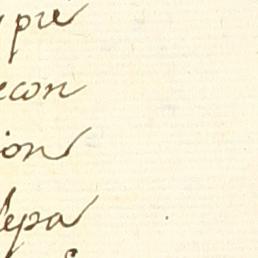 pre
econ
ion
lepa